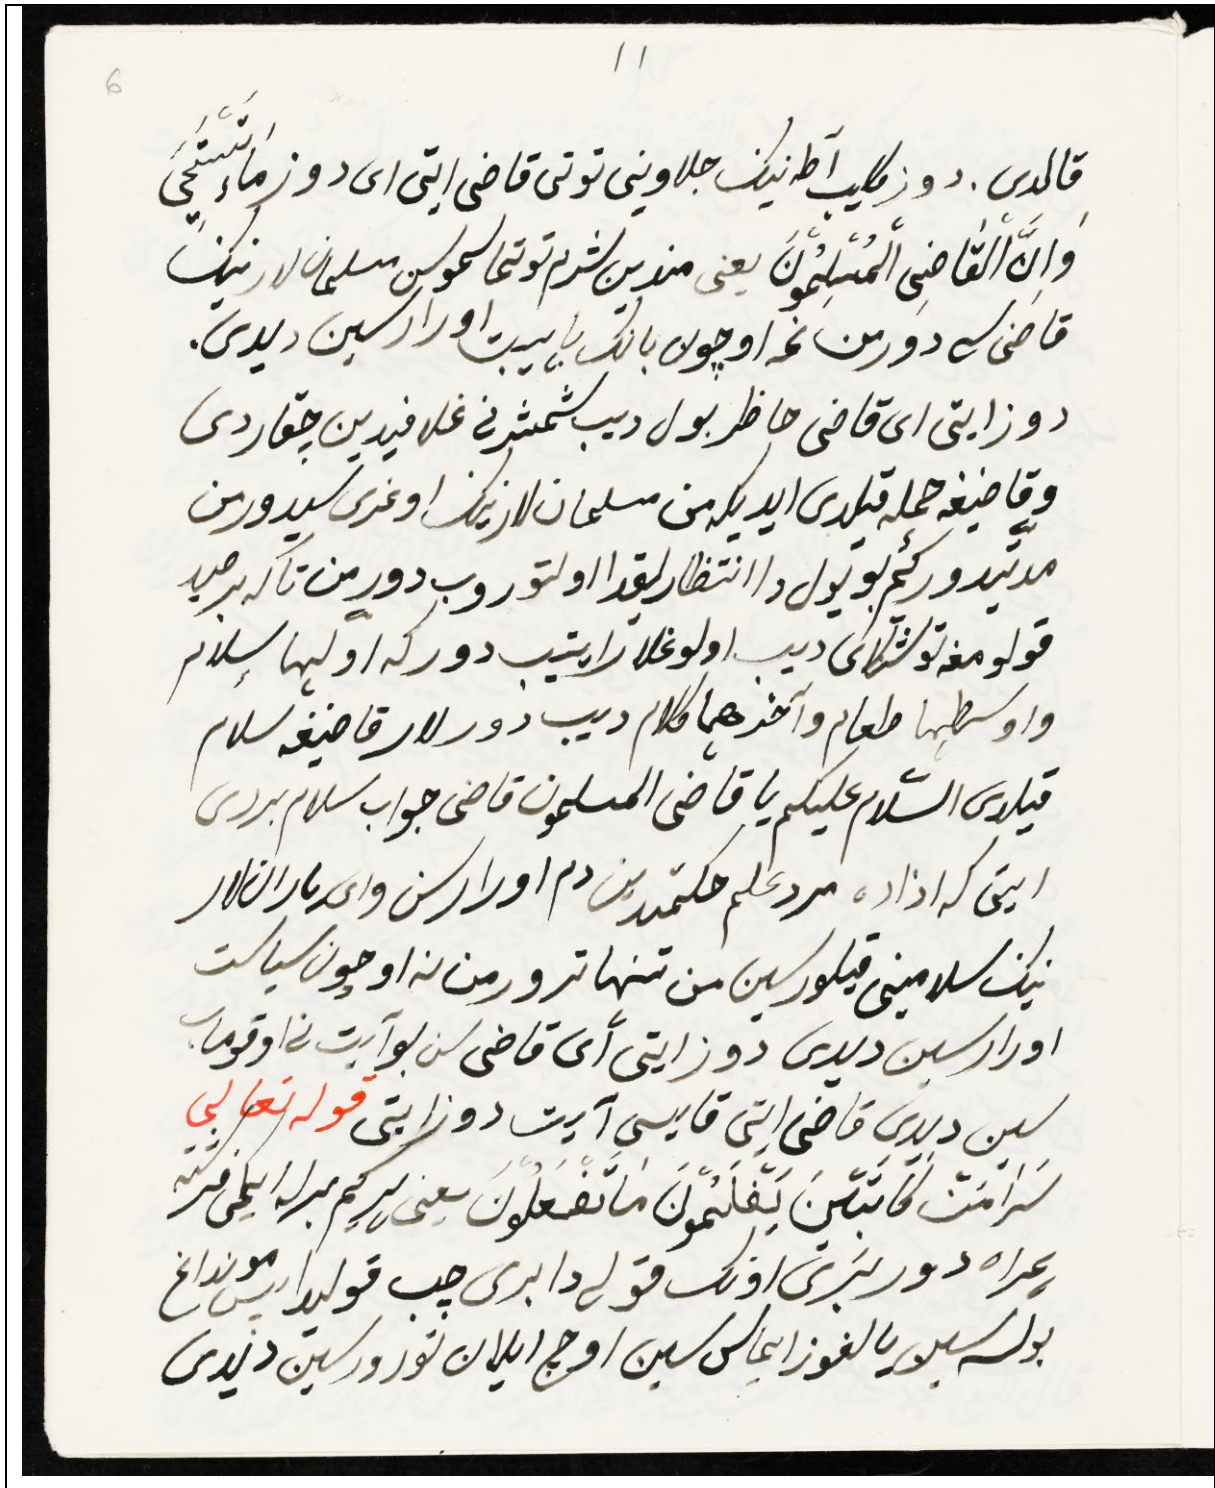 ۱۱
6
قالدی. دوز کلیب آطه نینک جلاوینی توتی قاضی ایتی ای دوز مَاءِ تَسْتَحْیَ
وَاِنَّ الْقَاضِی الْمُسْلِمُونَ یعنی مندین شرم توتماسموسن مسلمان لار نینک
قاضی سی دورمن نمه اوچون بانک یابیت اورارسین دیدی.
دوز ایتی ای قاضی حاظر بول دیب شمشیرنی غلافیدین چقاردی
و قاضیغه حمله قیلدی ایدیکه من مسلمان لار نینک اوغری سیدورمن
مدتیدورکم بو یول دا انتظارلیقدا اولتوروب دورمن تا که بر صید
قولومغه توشکای دیب اولوغلار ایتیب دور که اوّلیها سلام
و اوسطیها طعام و آخرهما کلام دیب دور لار قاضیغه سلام
قیلدی السّلام علیکم یا قاضی المسلمون قاضی جواب سلام بردی
ایتی که اذاده مرد علم حکمتدین دم اورارسن وای یاران لار
نینک سلامینی قیلورسین من تنها تورورمن نه اوچون سیاست
اورارسین دیدی دوز ایتی أی قاضی سن بو آیت نی اوقوماب
سین دیدی قاضی ایتی قایسی آیت دوز ایتی قوله تعالی
کِرَامَتْ کَاتَبَیْنَ یَعْلَمُونَ مَا تَفْعَلُونَ یعنی هر کیم برله ایکی فرشته
همراه دور بری اونک قولی دا بری چپ قولیدا ایس مونداغ
بولسه سین یالغوز ایماس سین اوچ ایلان تورورسین دیدی